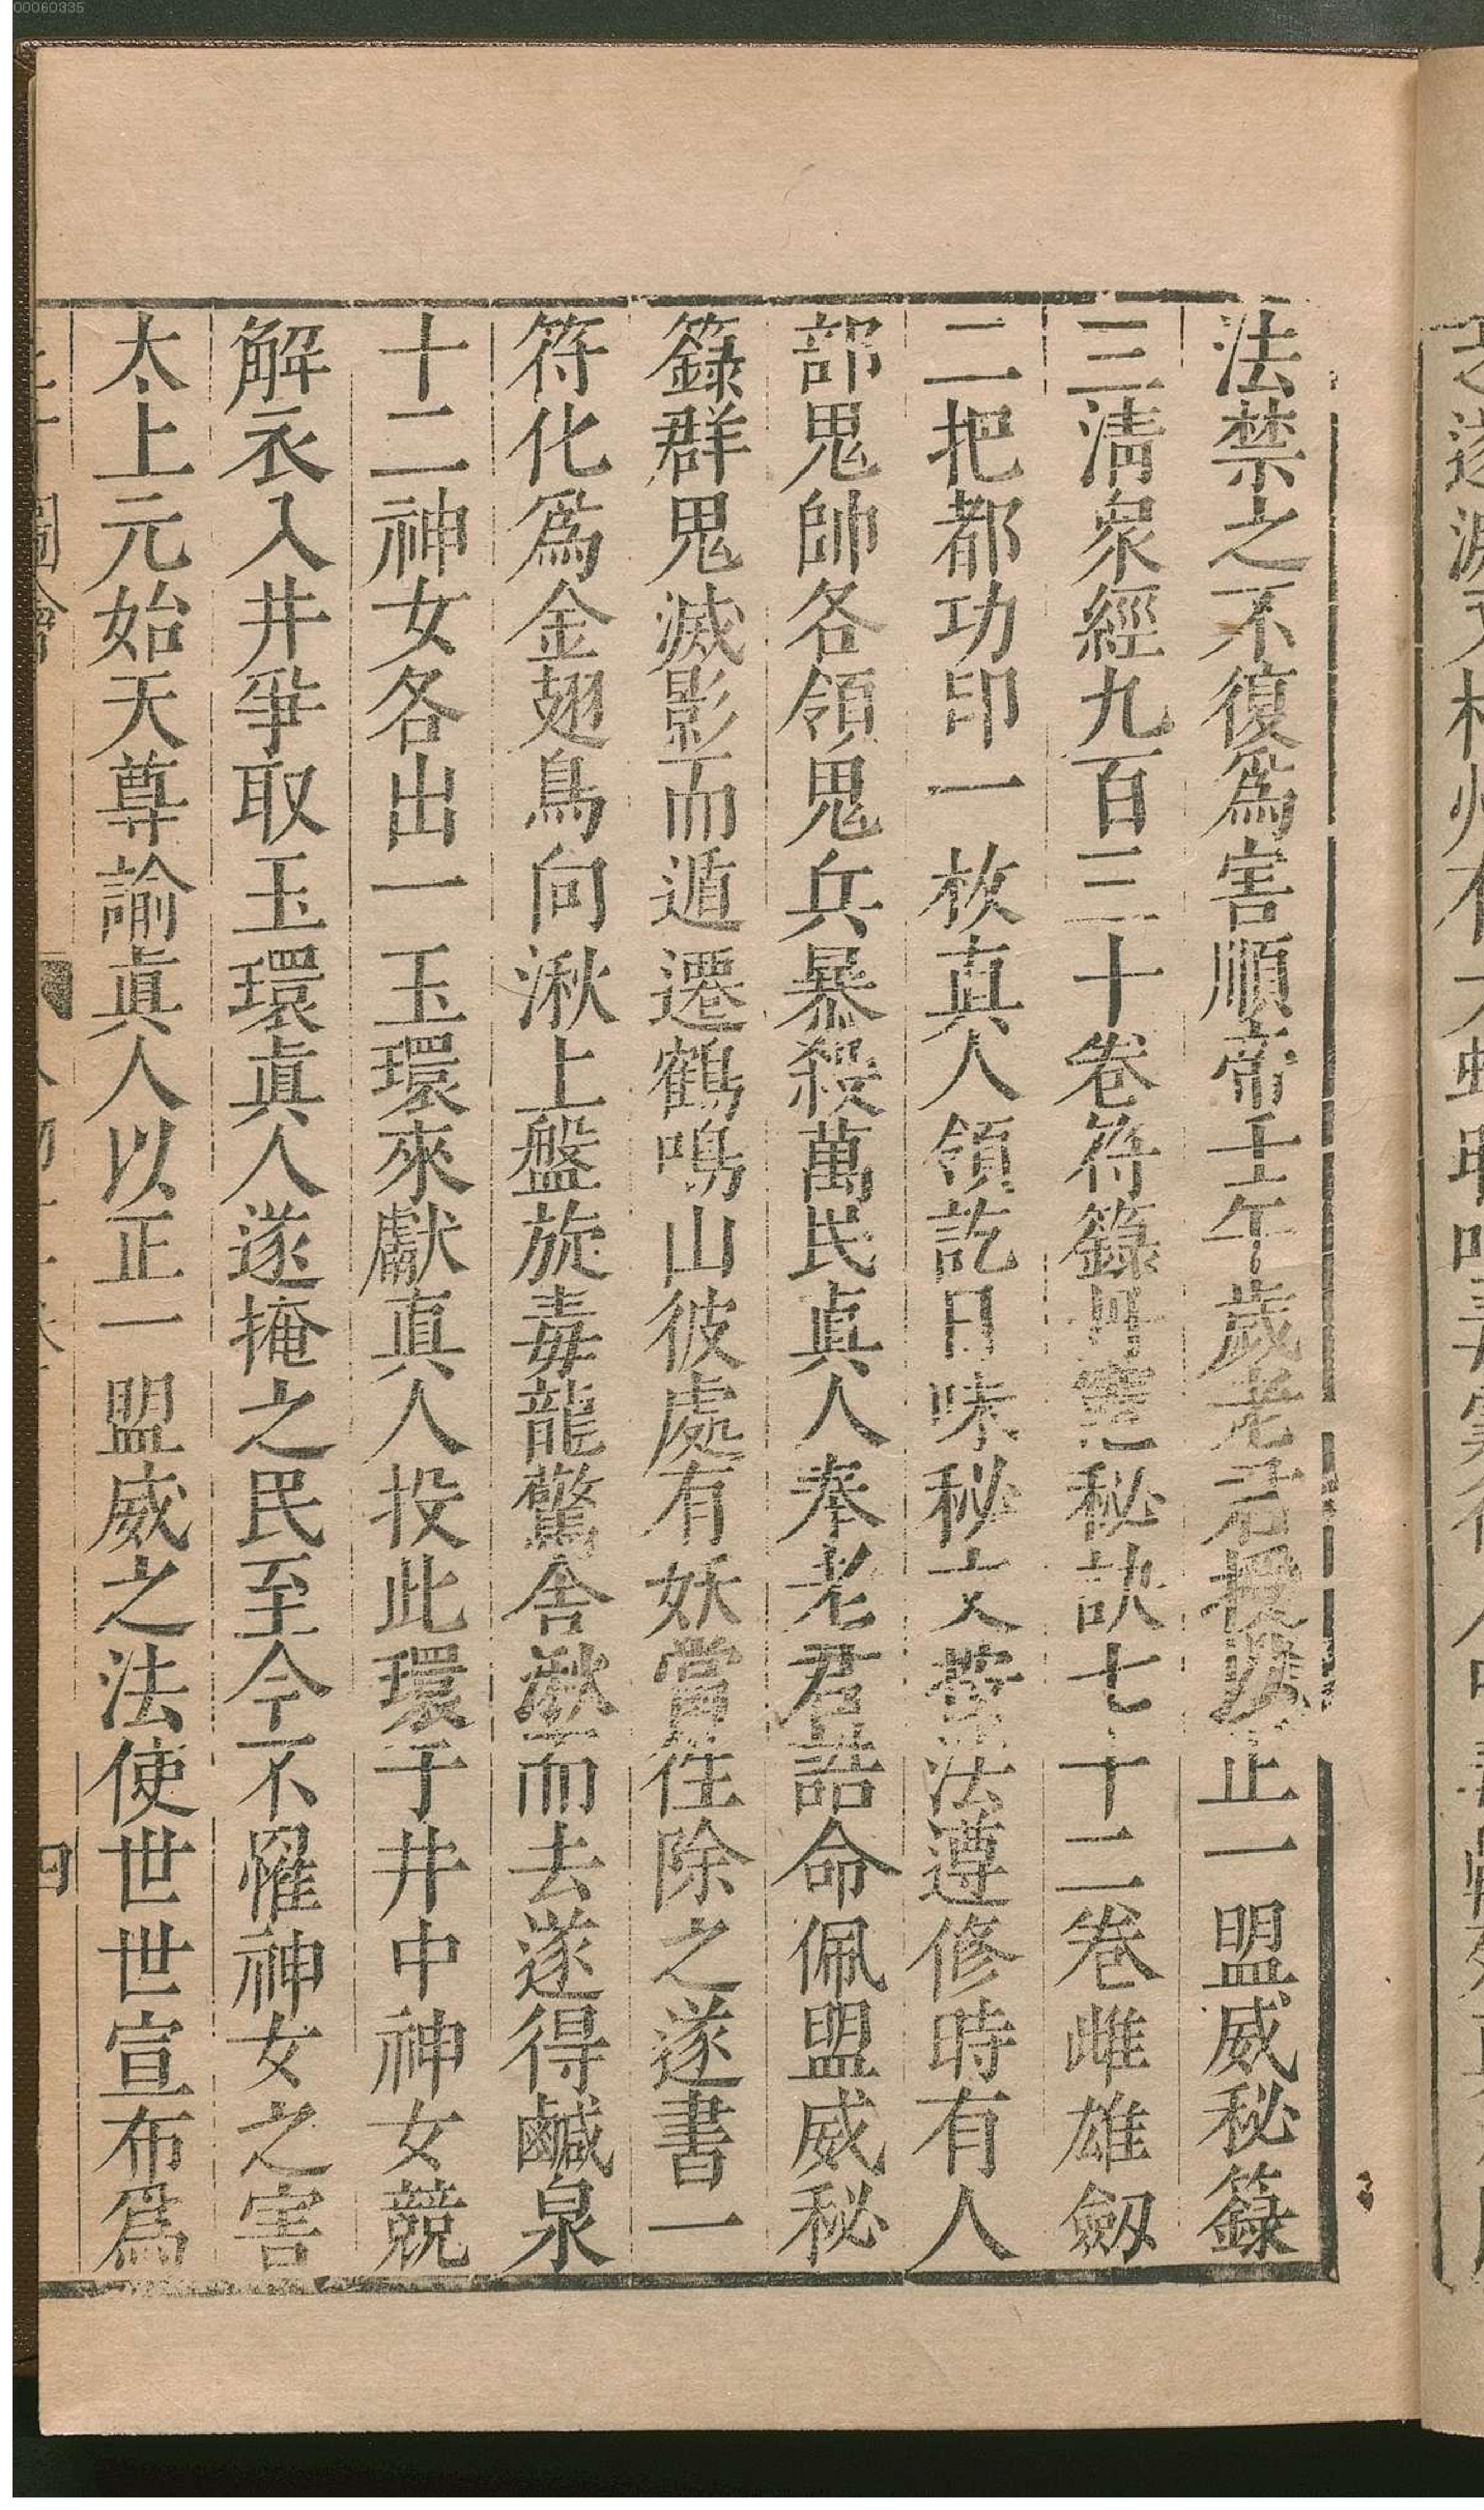 法禁之不復爲害順帝壬午歲老君授以正一盟威秘籙
三清衆經九百三十卷符籙丹竈秘訣七十二卷雌雄劔
二把都功印一枚真人領訖日味秘文帶法遵修時有人
部鬼帥各領鬼兵暴殺萬民眞人奉老君誥命佩盟威秘
籙群鬼滅影而遁遷鶴鳴山彼處有妖當往除之遂書一
符化爲金翅鳥向湫上盤旋毒龍驚舍湫而去遂得鹹泉
十二神女各出一玉環來獻真人投此環于井中神女競
解衣入井爭取玉環眞人遂掩之民至今不罹神女之害
太上元始天尊諭眞人以正一盟威之法使世世宣布爲
圖會
四
00060335